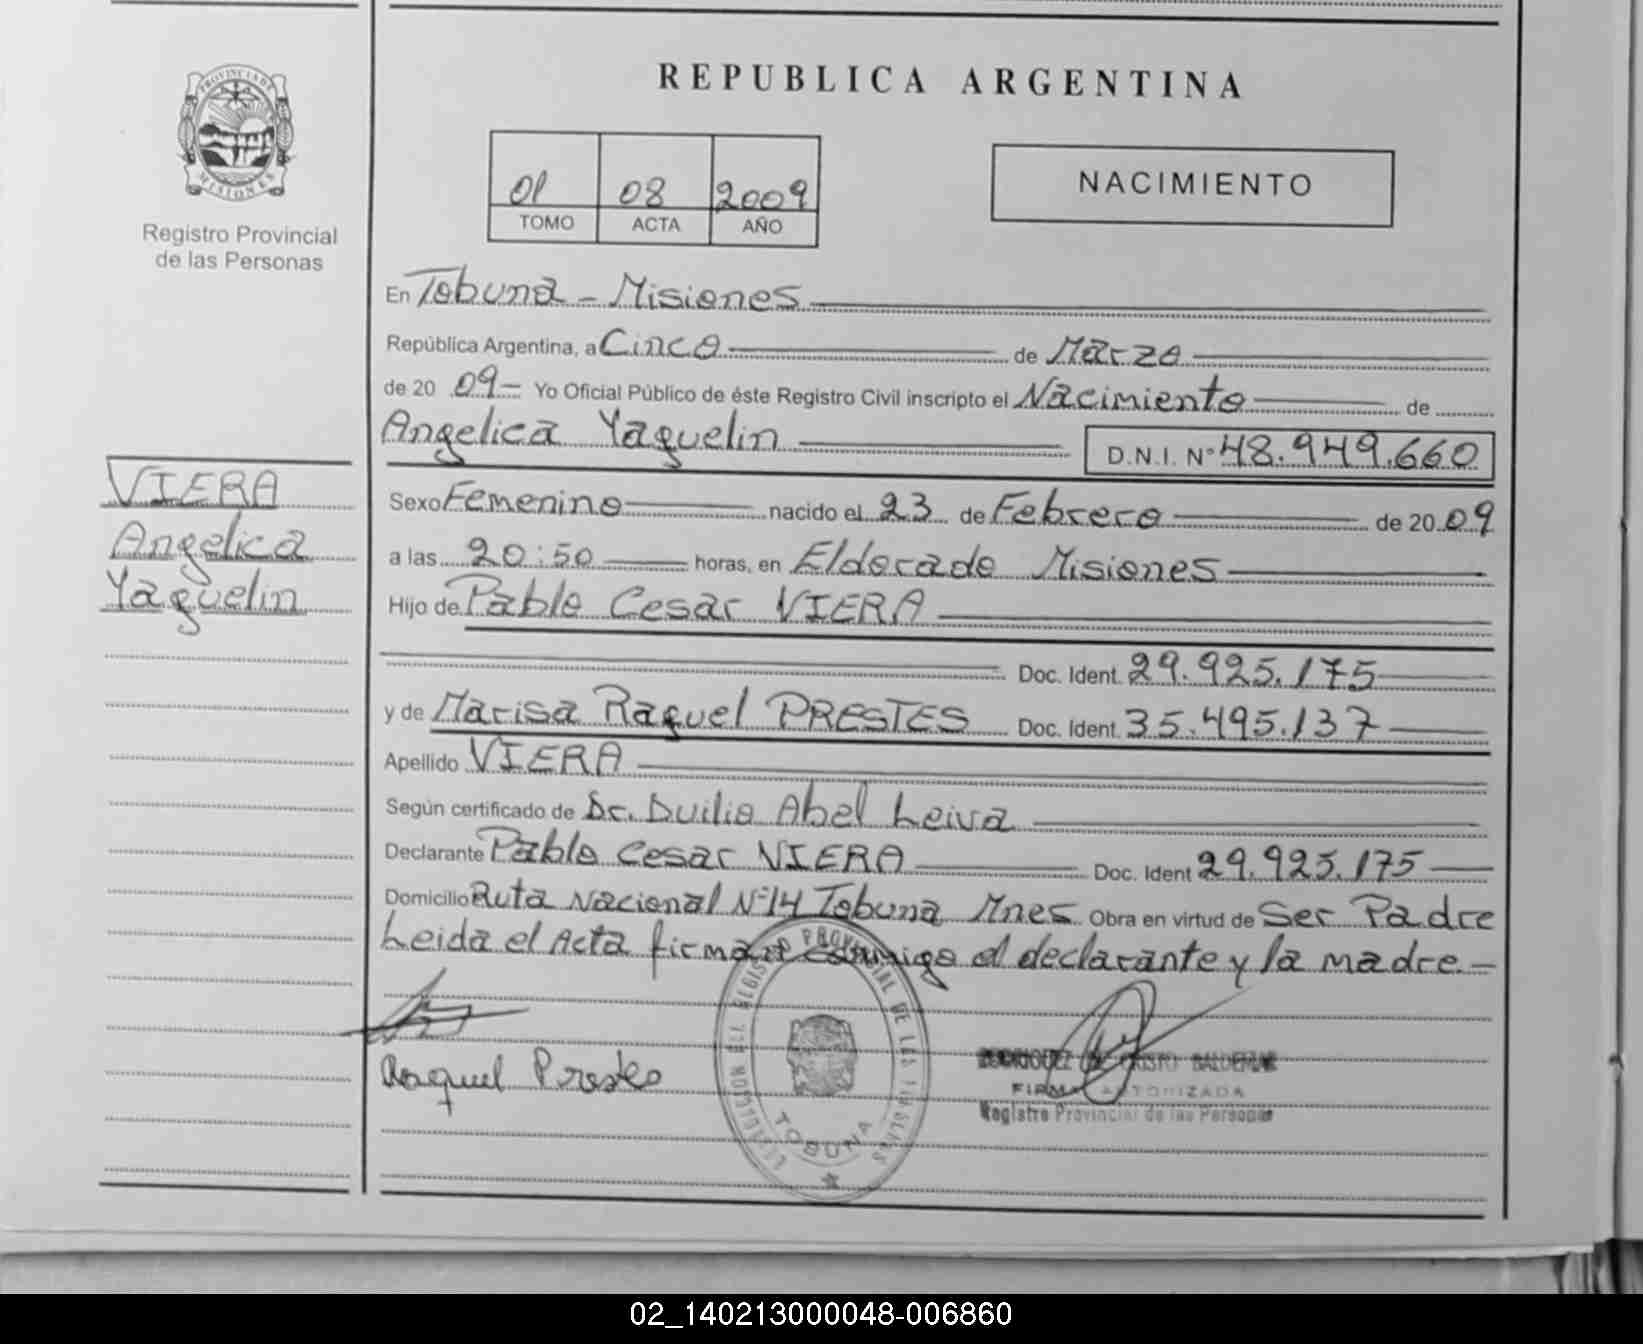 REPUBLICA ARGENTINA
PROVINCIA DE MISIONES
Registro Provincial
de las Personas
01 08 2009
TOMO ACTA AÑO
NACIMIENTO
En Tobuna - Misiones
República Argentina, a Cinco de Marzo
de 20 09- Yo Oficial Público de éste Registro Civil inscripto el Nacimiento de
Angelica Yaquelin D.N.I. Nº 48.949.660
VIERA
Angelica
Yaquelin
Sexo Femenino nacido el 23 de Febrero de 20 09
a las 20:50 horas, en Eldorado Misiones
Hijo de Pablo Cesar VIERA
Doc. Ident. 29.925.175
y de Marisa Raquel PRESTES Doc. Ident. 35.495.137
Apellido VIERA
Según certificado de Dr. Duilio Abel Leiva
Declarante Pablo Cesar VIERA Doc. Ident 29.925.175
Domicilio Ruta Nacional Nº14 Tobuna Mnes. Obra en virtud de Ser Padre
Leida el Acta firman conmigo el declarante y la madre.-
Raquel Prestes
REGISTRO PROVINCIAL DE LAS PERSONAS
TOBUNA
FIRMA AUTORIZADA
Registro Provincial de las Personas
02_140213000048-006860